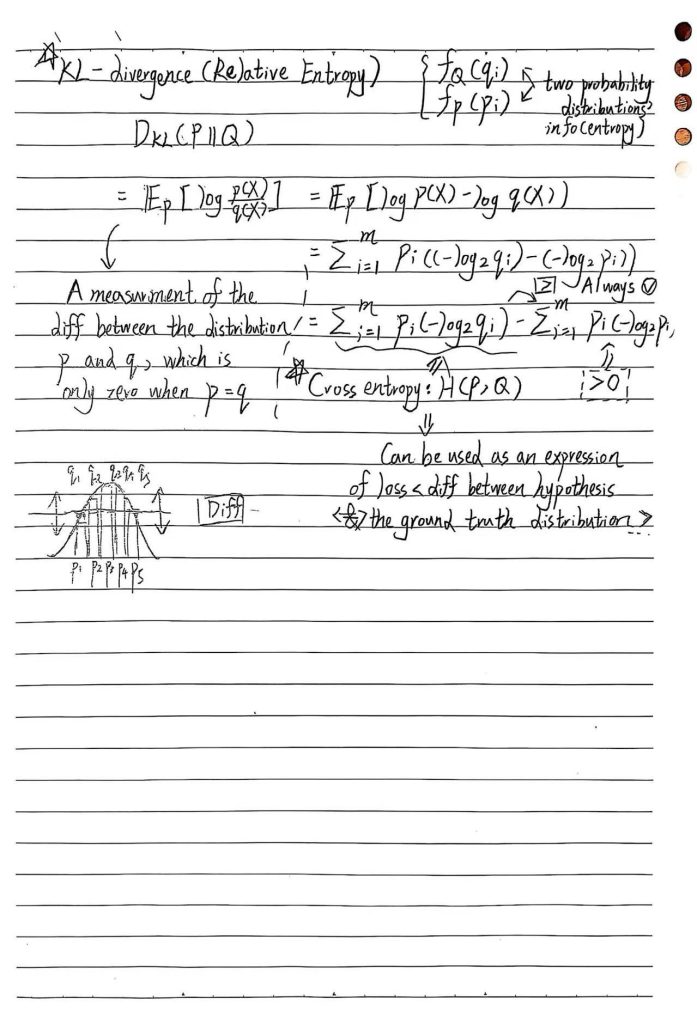 KL-divergence (Relative Entropy)
{ f_Q(q_i)
f_P(p_i)
two probability
distributions'
info(entropy)
D_KL(P||Q)
= E_p [log p(X)/q(X)] = E_p [log p(X) - log q(X)]
= Σ_{i=1}^m P_i((-log_2 q_i) - (-log_2 p_i))
≥ Always ✓
= Σ_{i=1}^m P_i(-log_2 q_i) - Σ_{i=1}^m P_i(-log_2 p_i)
A measurment of the
diff between the distribution
p and q, which is
only zero when p=q
Cross entropy: H(P,Q)
>0
Can be used as an expression
of loss < diff between hypothesis
the ground truth distribution... >
q_1 q_2 q_3 q_4 q_5
Diff
P_1 P_2 P_3 P_4 P_5